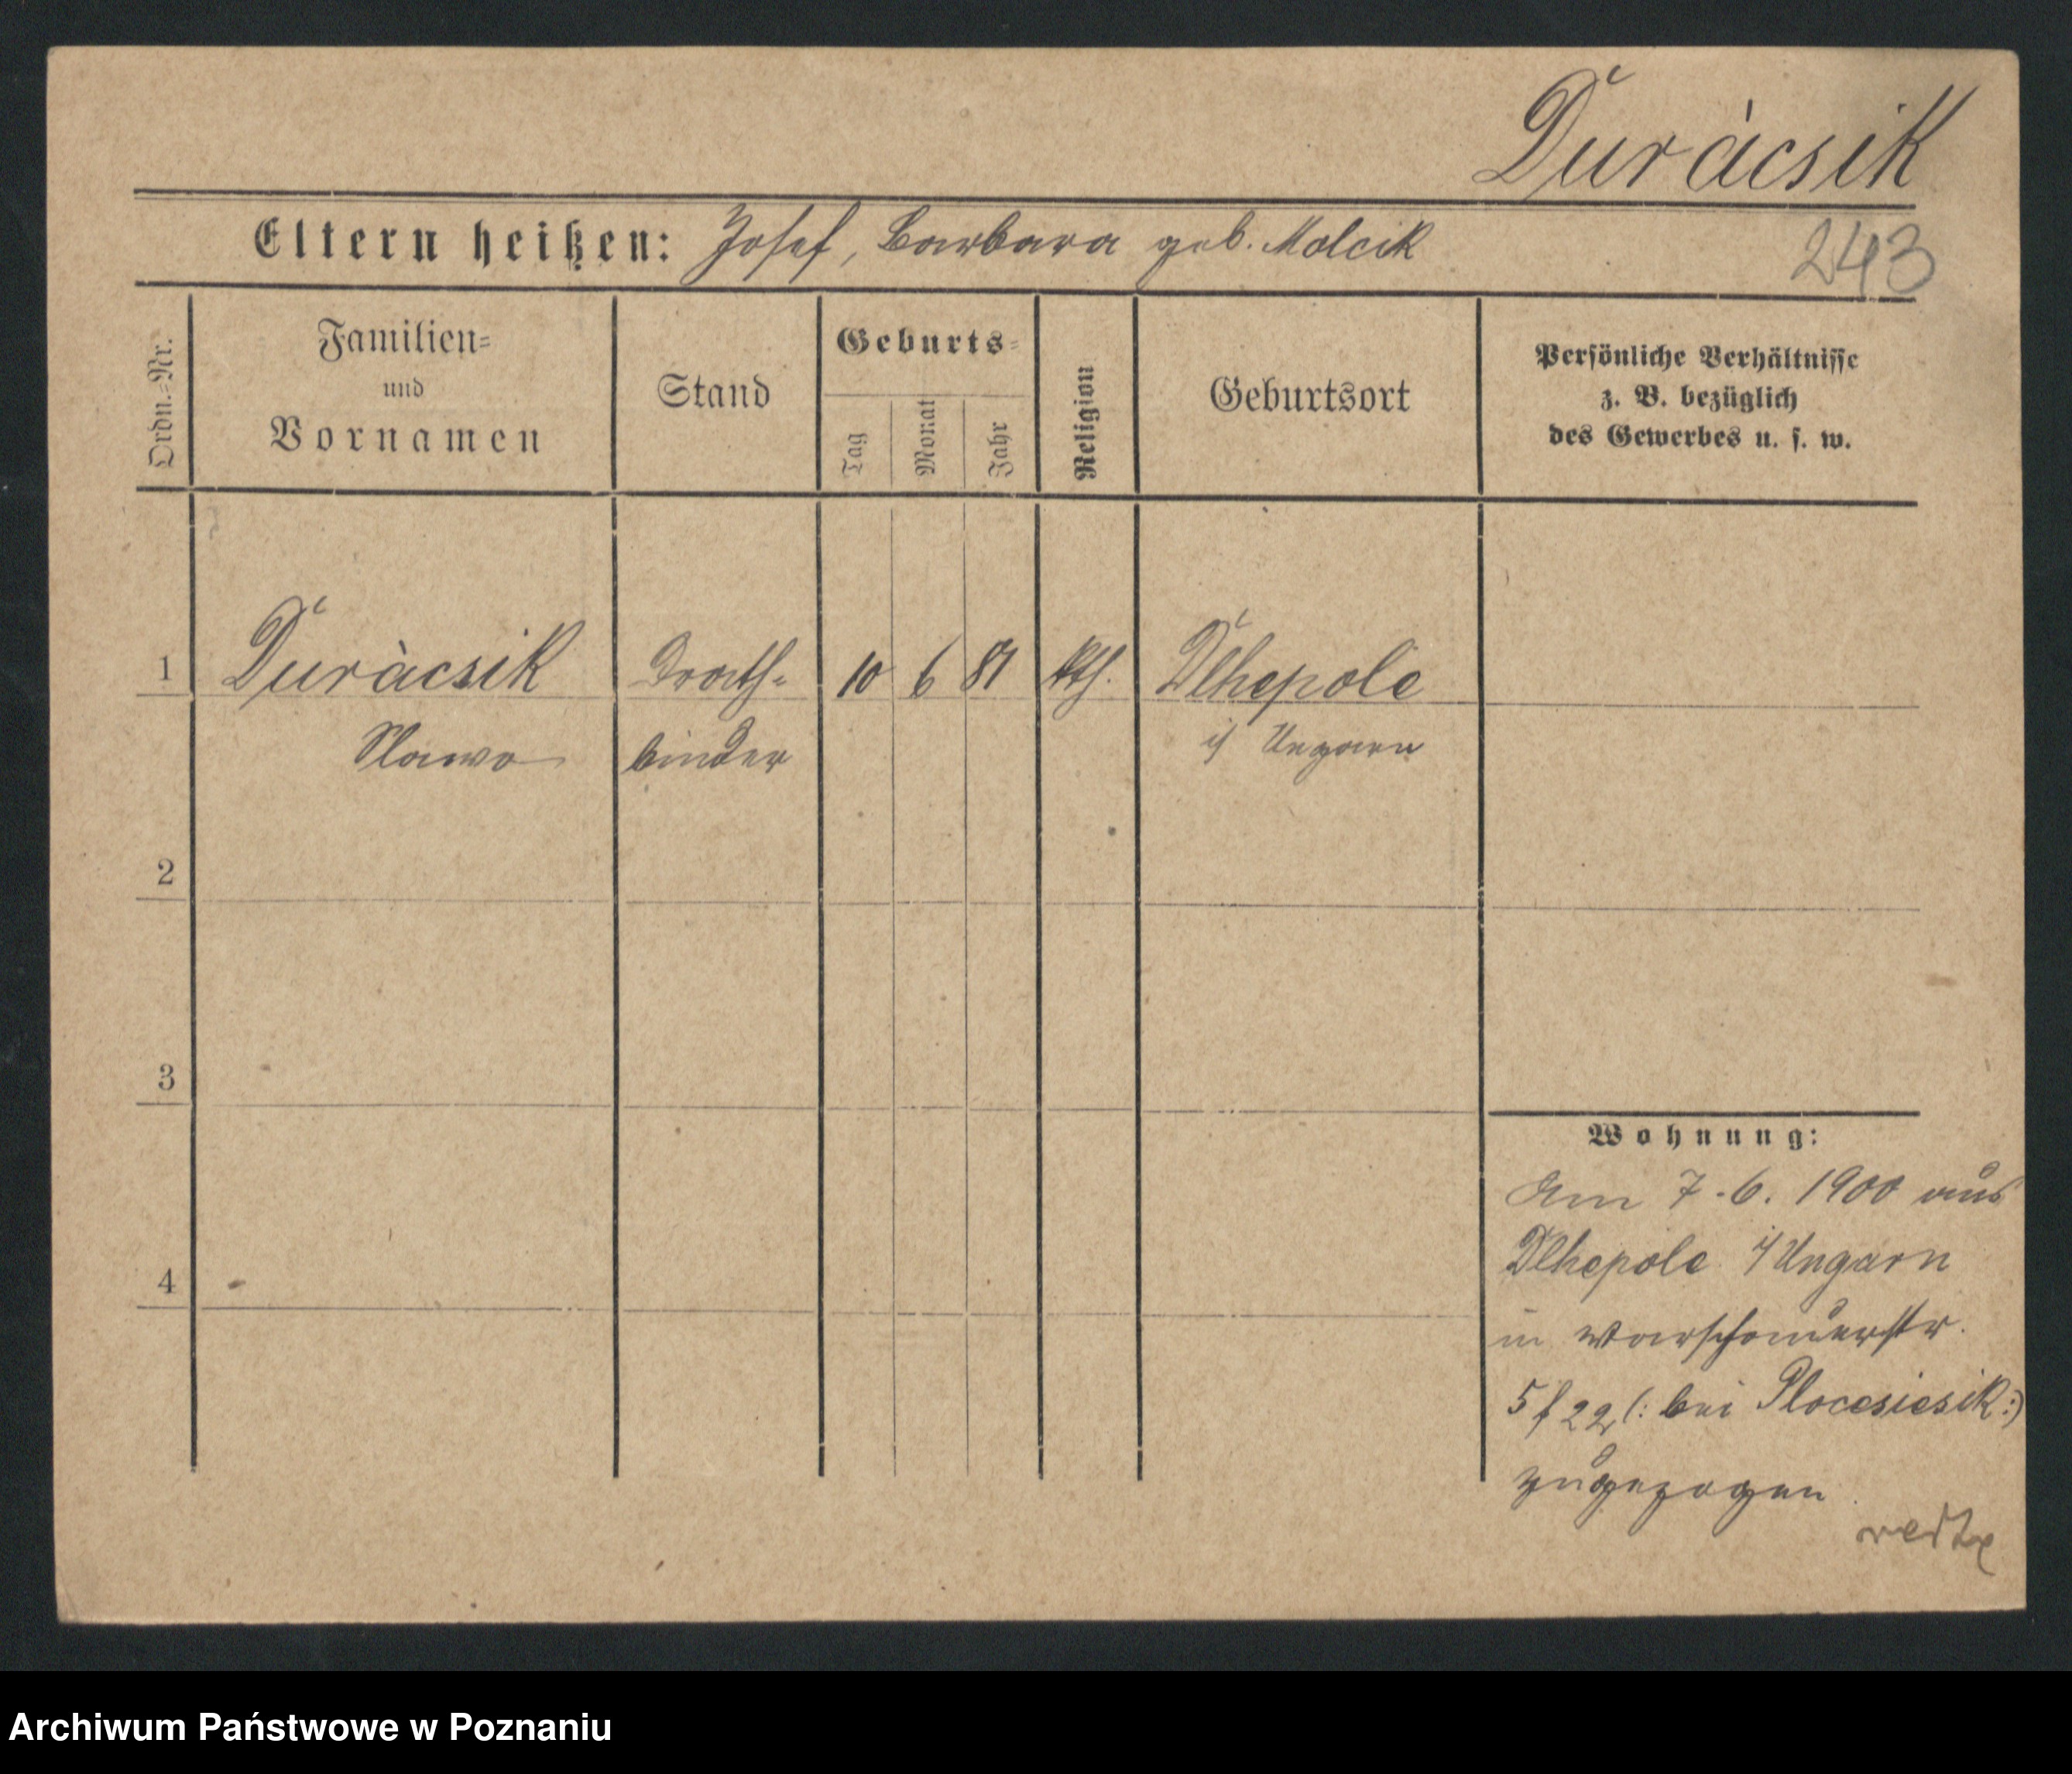 Duràcsik
Eltern heißen: Josef, Barbara geb. Molcik
243
Ordn.-Nr.
Familien-
und
Vornamen
Stand
Geburts-
Tag
Monat
Jahr
Religion
Geburtsort
Persönliche Verhältnisse
z. B. bezüglich
des Gewerbes u. s. w.
1 Duràcsik Drath- 10 6 81 kth. Dlhepole
binder i/ Ungarn
2
3
4
Wohnung:
Am 7.6. 1900 aus
Dlhepole i/ Ungarn
in Warschauerstr.
5 f 22 (: bei Plocesiesik :)
zugezogen.
Archiwum Państwowe w Poznaniu